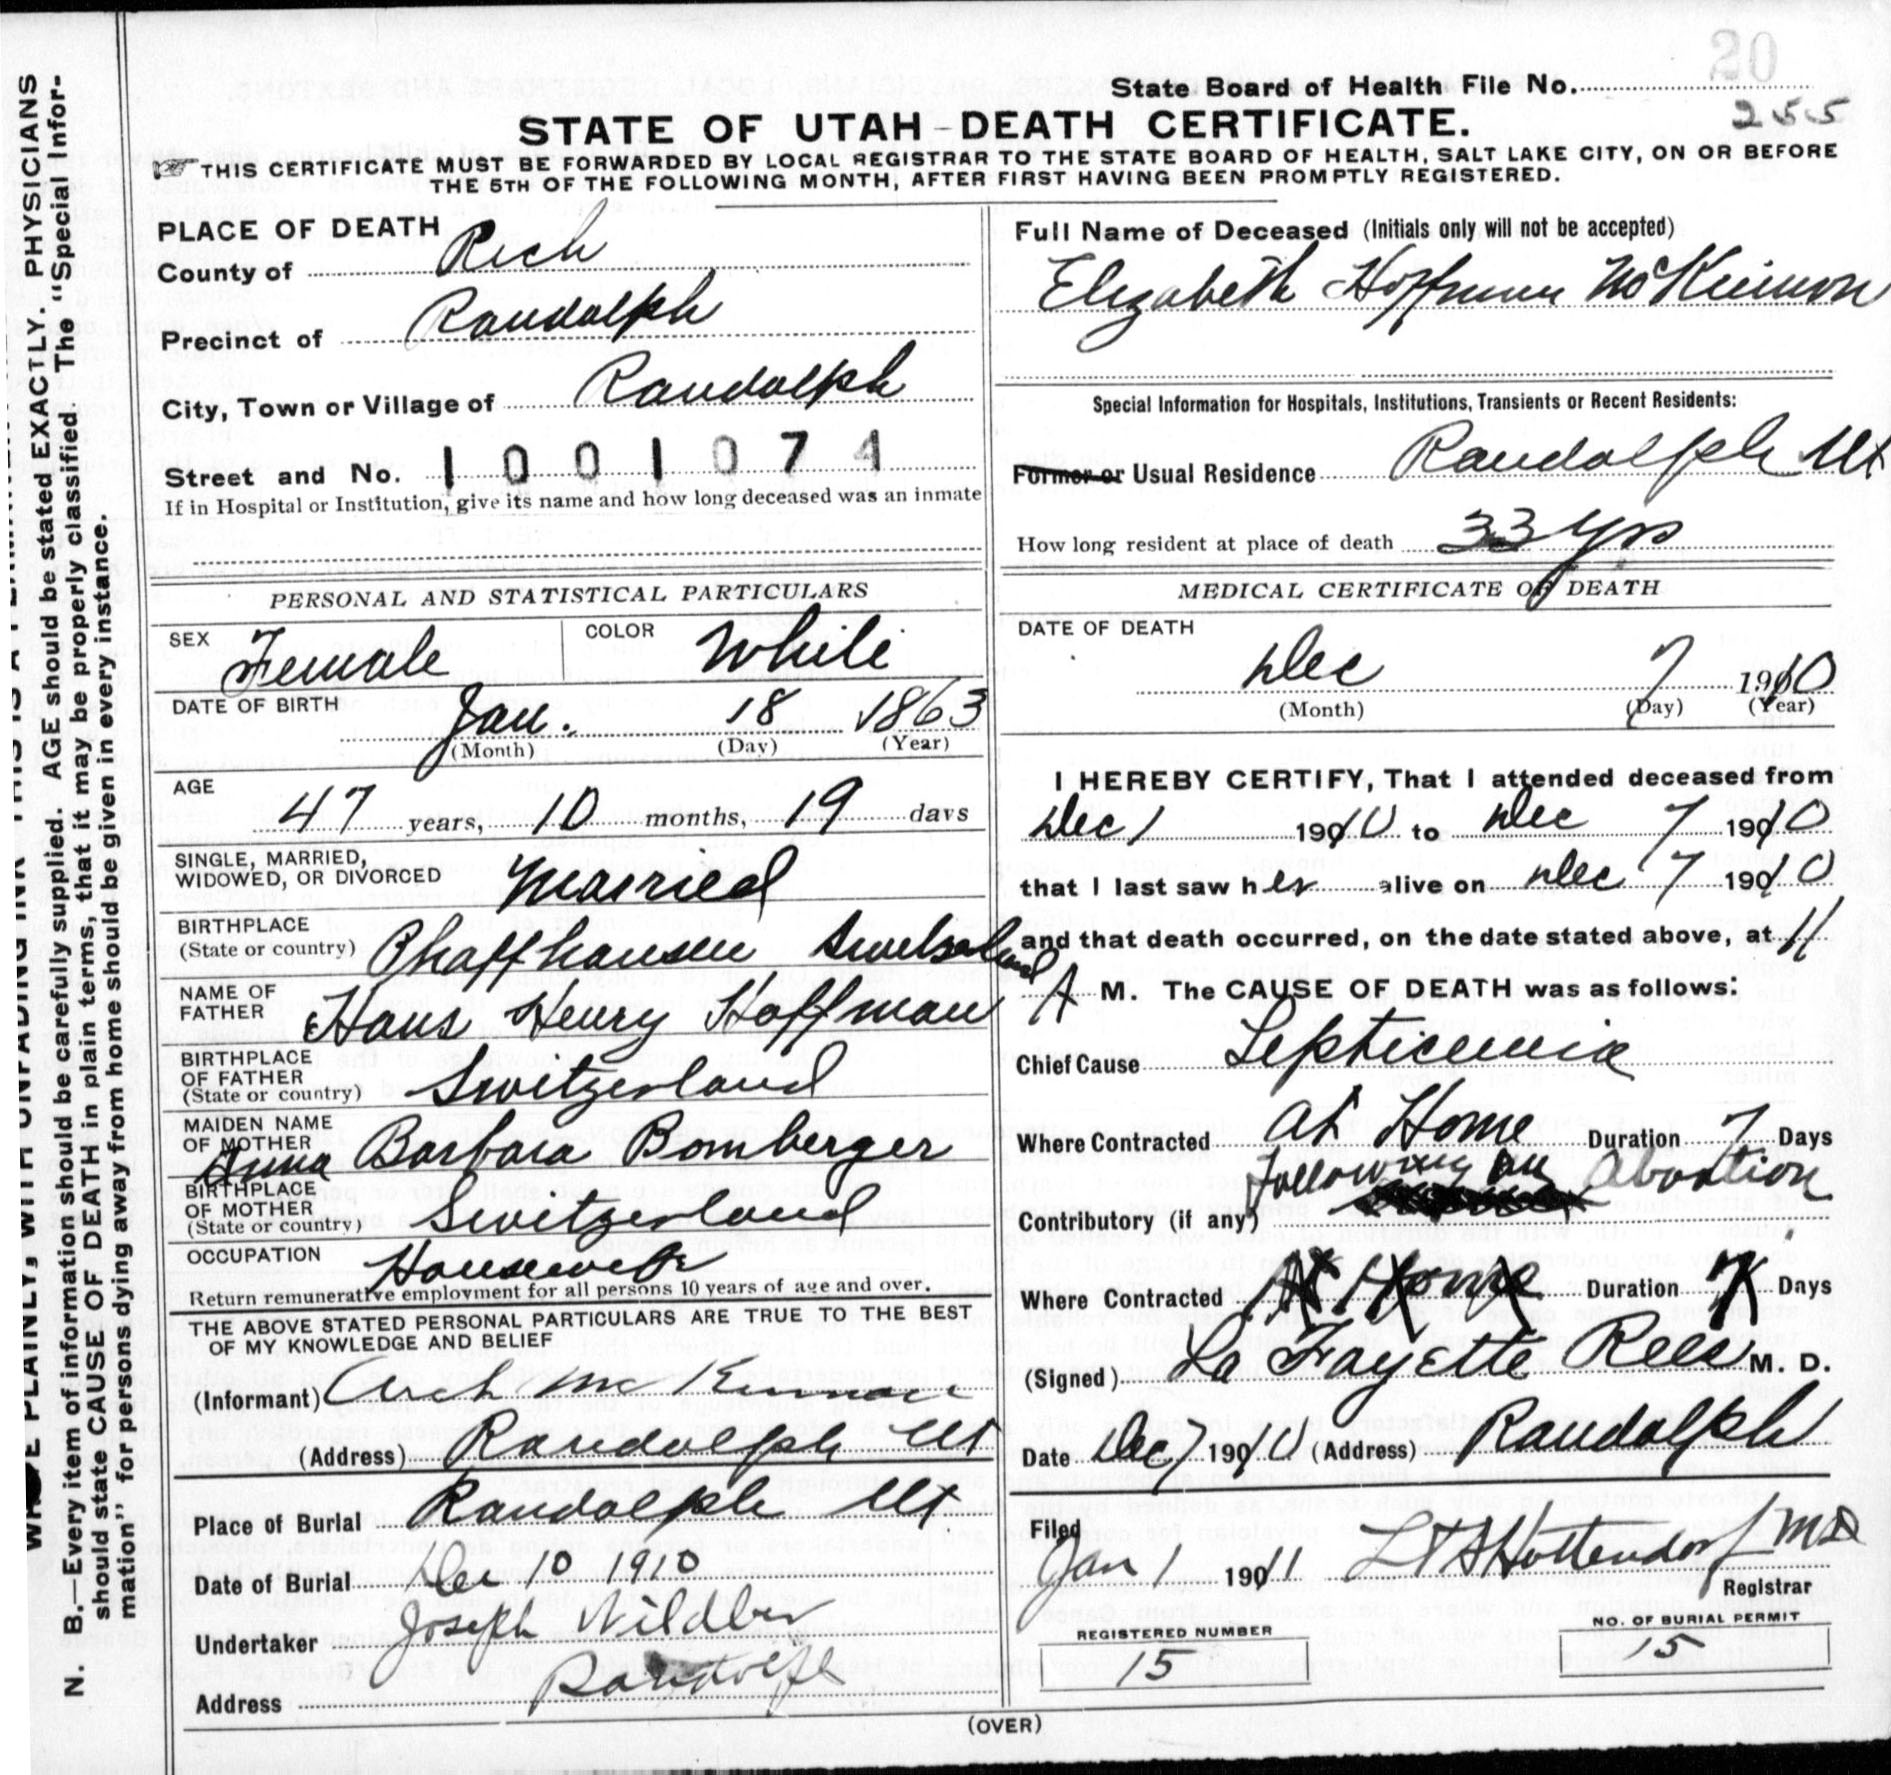 20
State Board of Health File No.
255
STATE OF UTAH - DEATH CERTIFICATE.
THIS CERTIFICATE MUST BE FORWARDED BY LOCAL REGISTRAR TO THE STATE BOARD OF HEALTH, SALT LAKE CITY, ON OR BEFORE
THE 5TH OF THE FOLLOWING MONTH, AFTER FIRST HAVING BEEN PROMPTLY REGISTERED.
PLACE OF DEATH
County of Rich
Precinct of Randolph
City, Town or Village of Randolph
Street and No. 1001074
If in Hospital or Institution, give its name and how long deceased was an inmate
PERSONAL AND STATISTICAL PARTICULARS
SEX Female COLOR White
DATE OF BIRTH Jan. 18 1863
(Month) (Day) (Year)
AGE
47 years, 10 months, 19 days
SINGLE, MARRIED,
WIDOWED, OR DIVORCED Married
BIRTHPLACE
(State or country) Phaffhausen Switzerland
NAME OF
FATHER Hans Henry Hoffman
BIRTHPLACE
OF FATHER
(State or country) Switzerland
MAIDEN NAME
OF MOTHER Anna Barbara Bomberger
BIRTHPLACE
OF MOTHER
(State or country) Switzerland
OCCUPATION Housewife
Return remunerative employment for all persons 10 years of age and over.
THE ABOVE STATED PERSONAL PARTICULARS ARE TRUE TO THE BEST
OF MY KNOWLEDGE AND BELIEF
(Informant) Arch McKinnon
(Address) Randolph Ut
Place of Burial Randolph Ut
Date of Burial Dec 10 1910
Undertaker Joseph Wildber
Address Randolph
Full Name of Deceased (Initials only will not be accepted)
Elizabeth Hoffman McKinnon
Special Information for Hospitals, Institutions, Transients or Recent Residents:
Former or Usual Residence Randolph Ut
How long resident at place of death 33 yrs
MEDICAL CERTIFICATE OF DEATH
DATE OF DEATH
Dec 7 1910
(Month) (Day) (Year)
I HEREBY CERTIFY, That I attended deceased from
Dec 1 1910 to Dec 7 1910
that I last saw her alive on Dec 7 1910
and that death occurred, on the date stated above, at 11
A M. The CAUSE OF DEATH was as follows:
Chief Cause Septicemia
Where Contracted at Home Duration 7 Days
Following an Abortion
Contributory (if any)
Where Contracted At Home Duration 7 Days
(Signed) La Fayette Rees M. D.
Date Dec 7 1910 (Address) Randolph
Filed
Jan 1 1911 Hottendorf MD
Registrar
REGISTERED NUMBER
15
NO. OF BURIAL PERMIT
15
(OVER)
N. B.—Every item of information should be carefully supplied. AGE should be stated EXACTLY. PHYSICIANS
should state CAUSE OF DEATH in plain terms, that it may be properly classified. The "Special Infor-
mation" for persons dying away from home should be given in every instance.